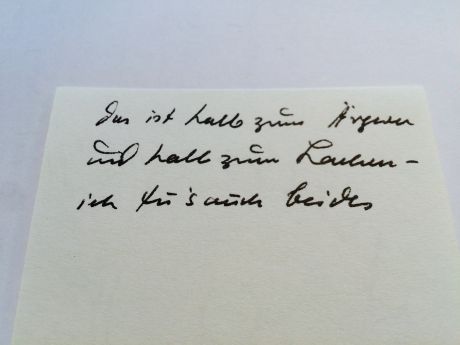 das ist halb zum Ärgern
und halb zum Lachen -
ich tu's auch beides